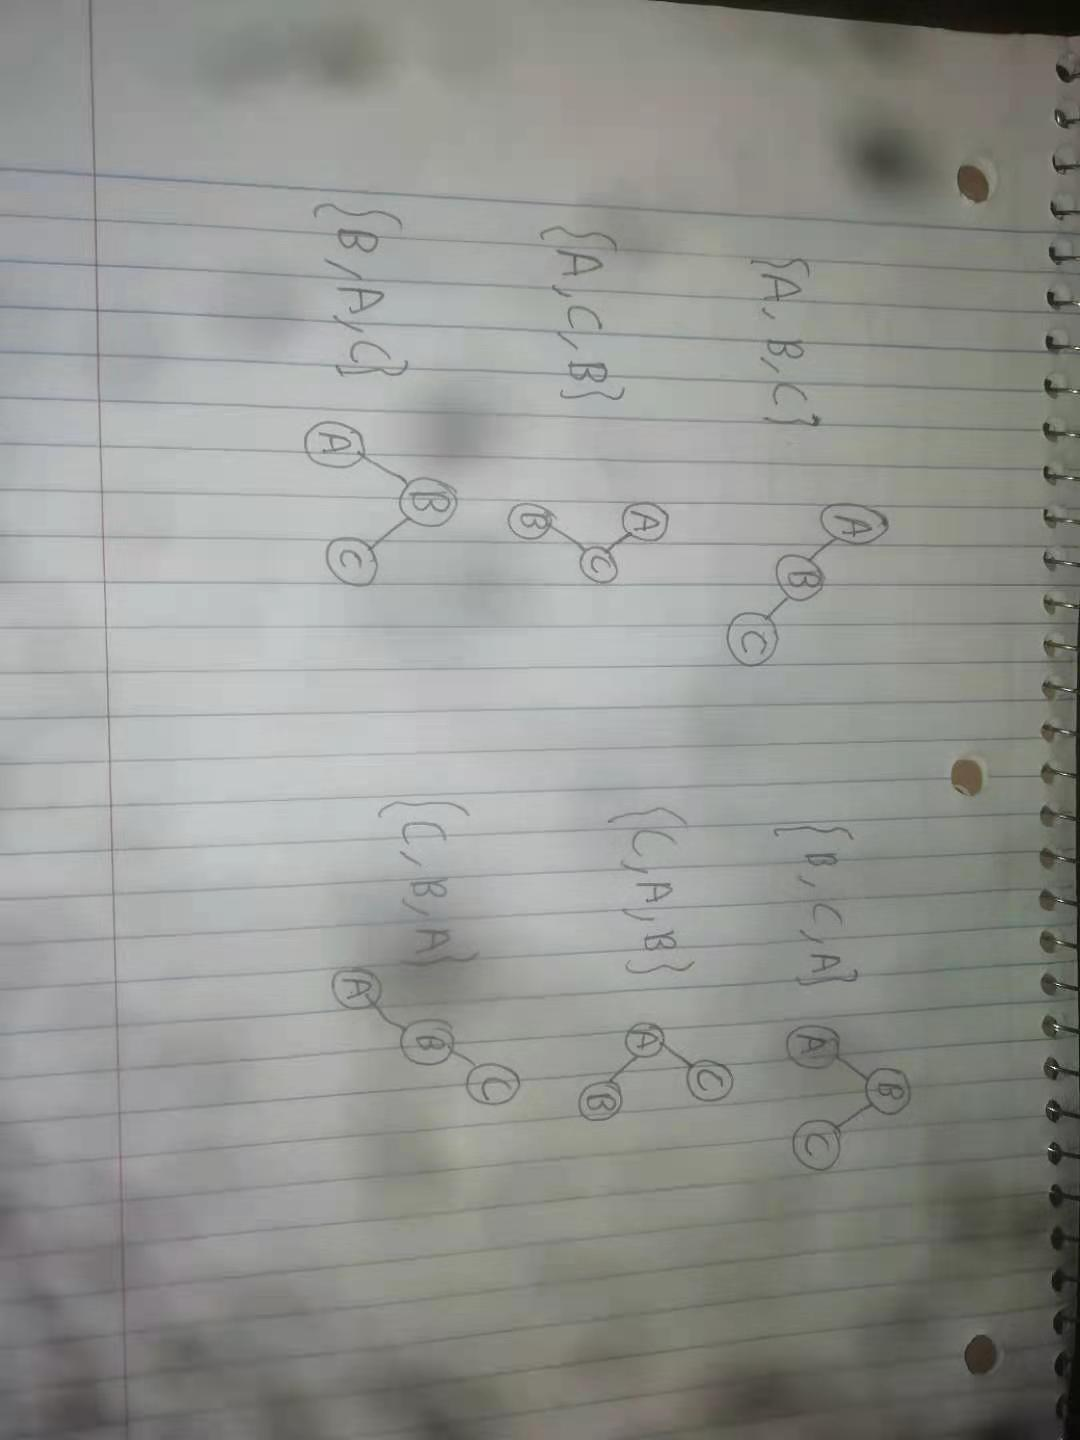 {A, B, C}
A
B
C
{A, C, B}
A
C
B
{B, A, C}
B
A C
{B, C, A}
B
A C
{C, A, B}
C
A
B
{C, B, A}
C
B
A